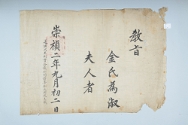 教旨
金氏為淑
夫人者
崇禎二年九月初二日